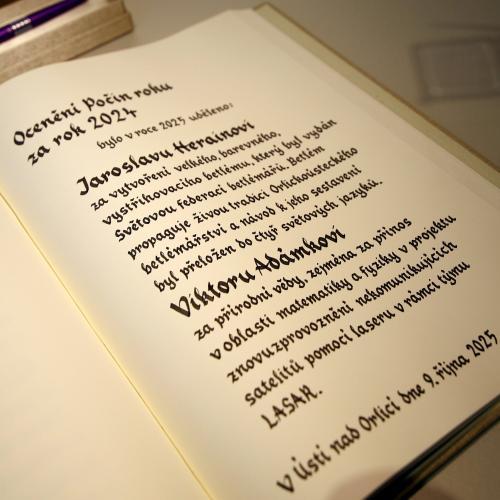 Ocenění Počin roku
za rok 2024
bylo v roce 2025 uděleno:
Jaroslavu Herainovi
za vytvoření velkého, barevného,
vystřihovacího betlému, který byl vydán
Světovou federací betlémářů. Betlém
propaguje živou tradici Orlickoústeckého
betlémářství a návod k jeho sestavení
byl přeložen do čtyř světových jazyků.
Viktoru Adámkovi
za přírodní vědy, zejména za přínos
v oblasti matematiky a fyziky v projektu
znovuzprovoznění nekomunikujících
satelitů pomocí laseru v rámci týmu
LASAR.
V Ústí nad Orlicí dne 9. října 2025